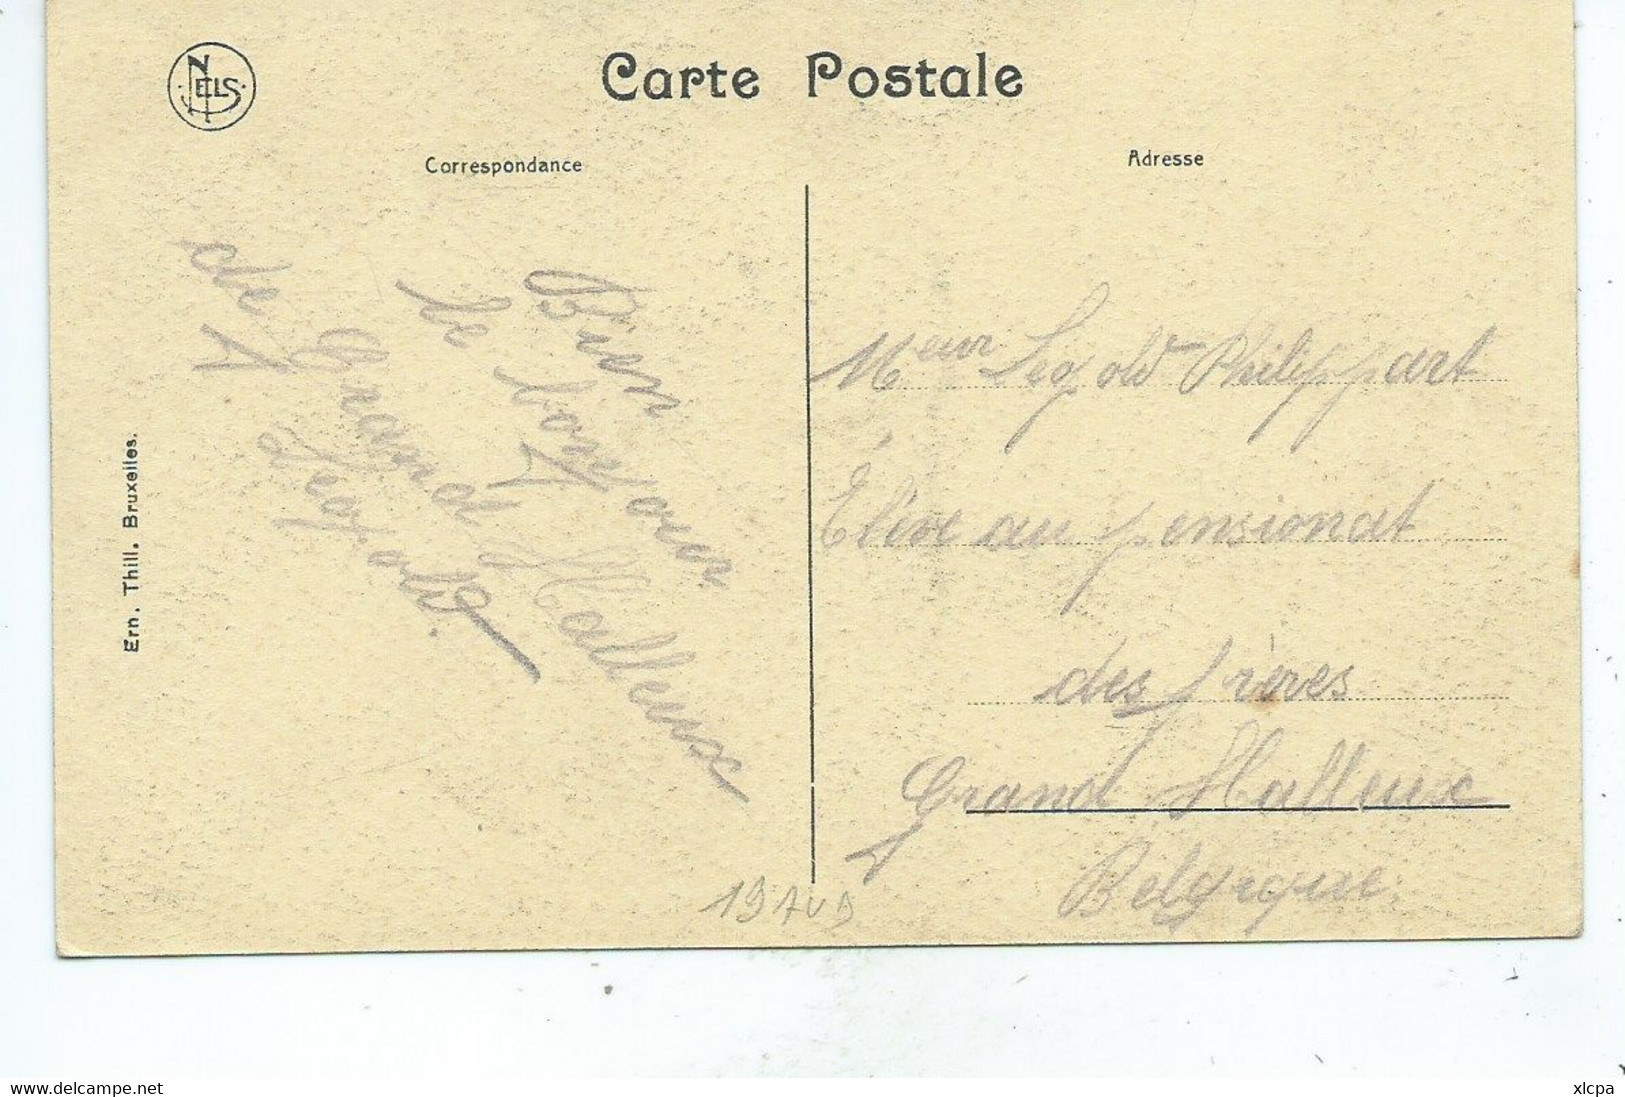 NELS
Carte Postale
Correspondance
Adresse
Bien
le bonjour
de Grand Halleux
Léopold.
Ern. Thill. Bruxelles.
Meur Léopold Philippart
Élève au pensionat
des frères
Grand Halleux
Belgique.
www.delcampe.net
xlcpa